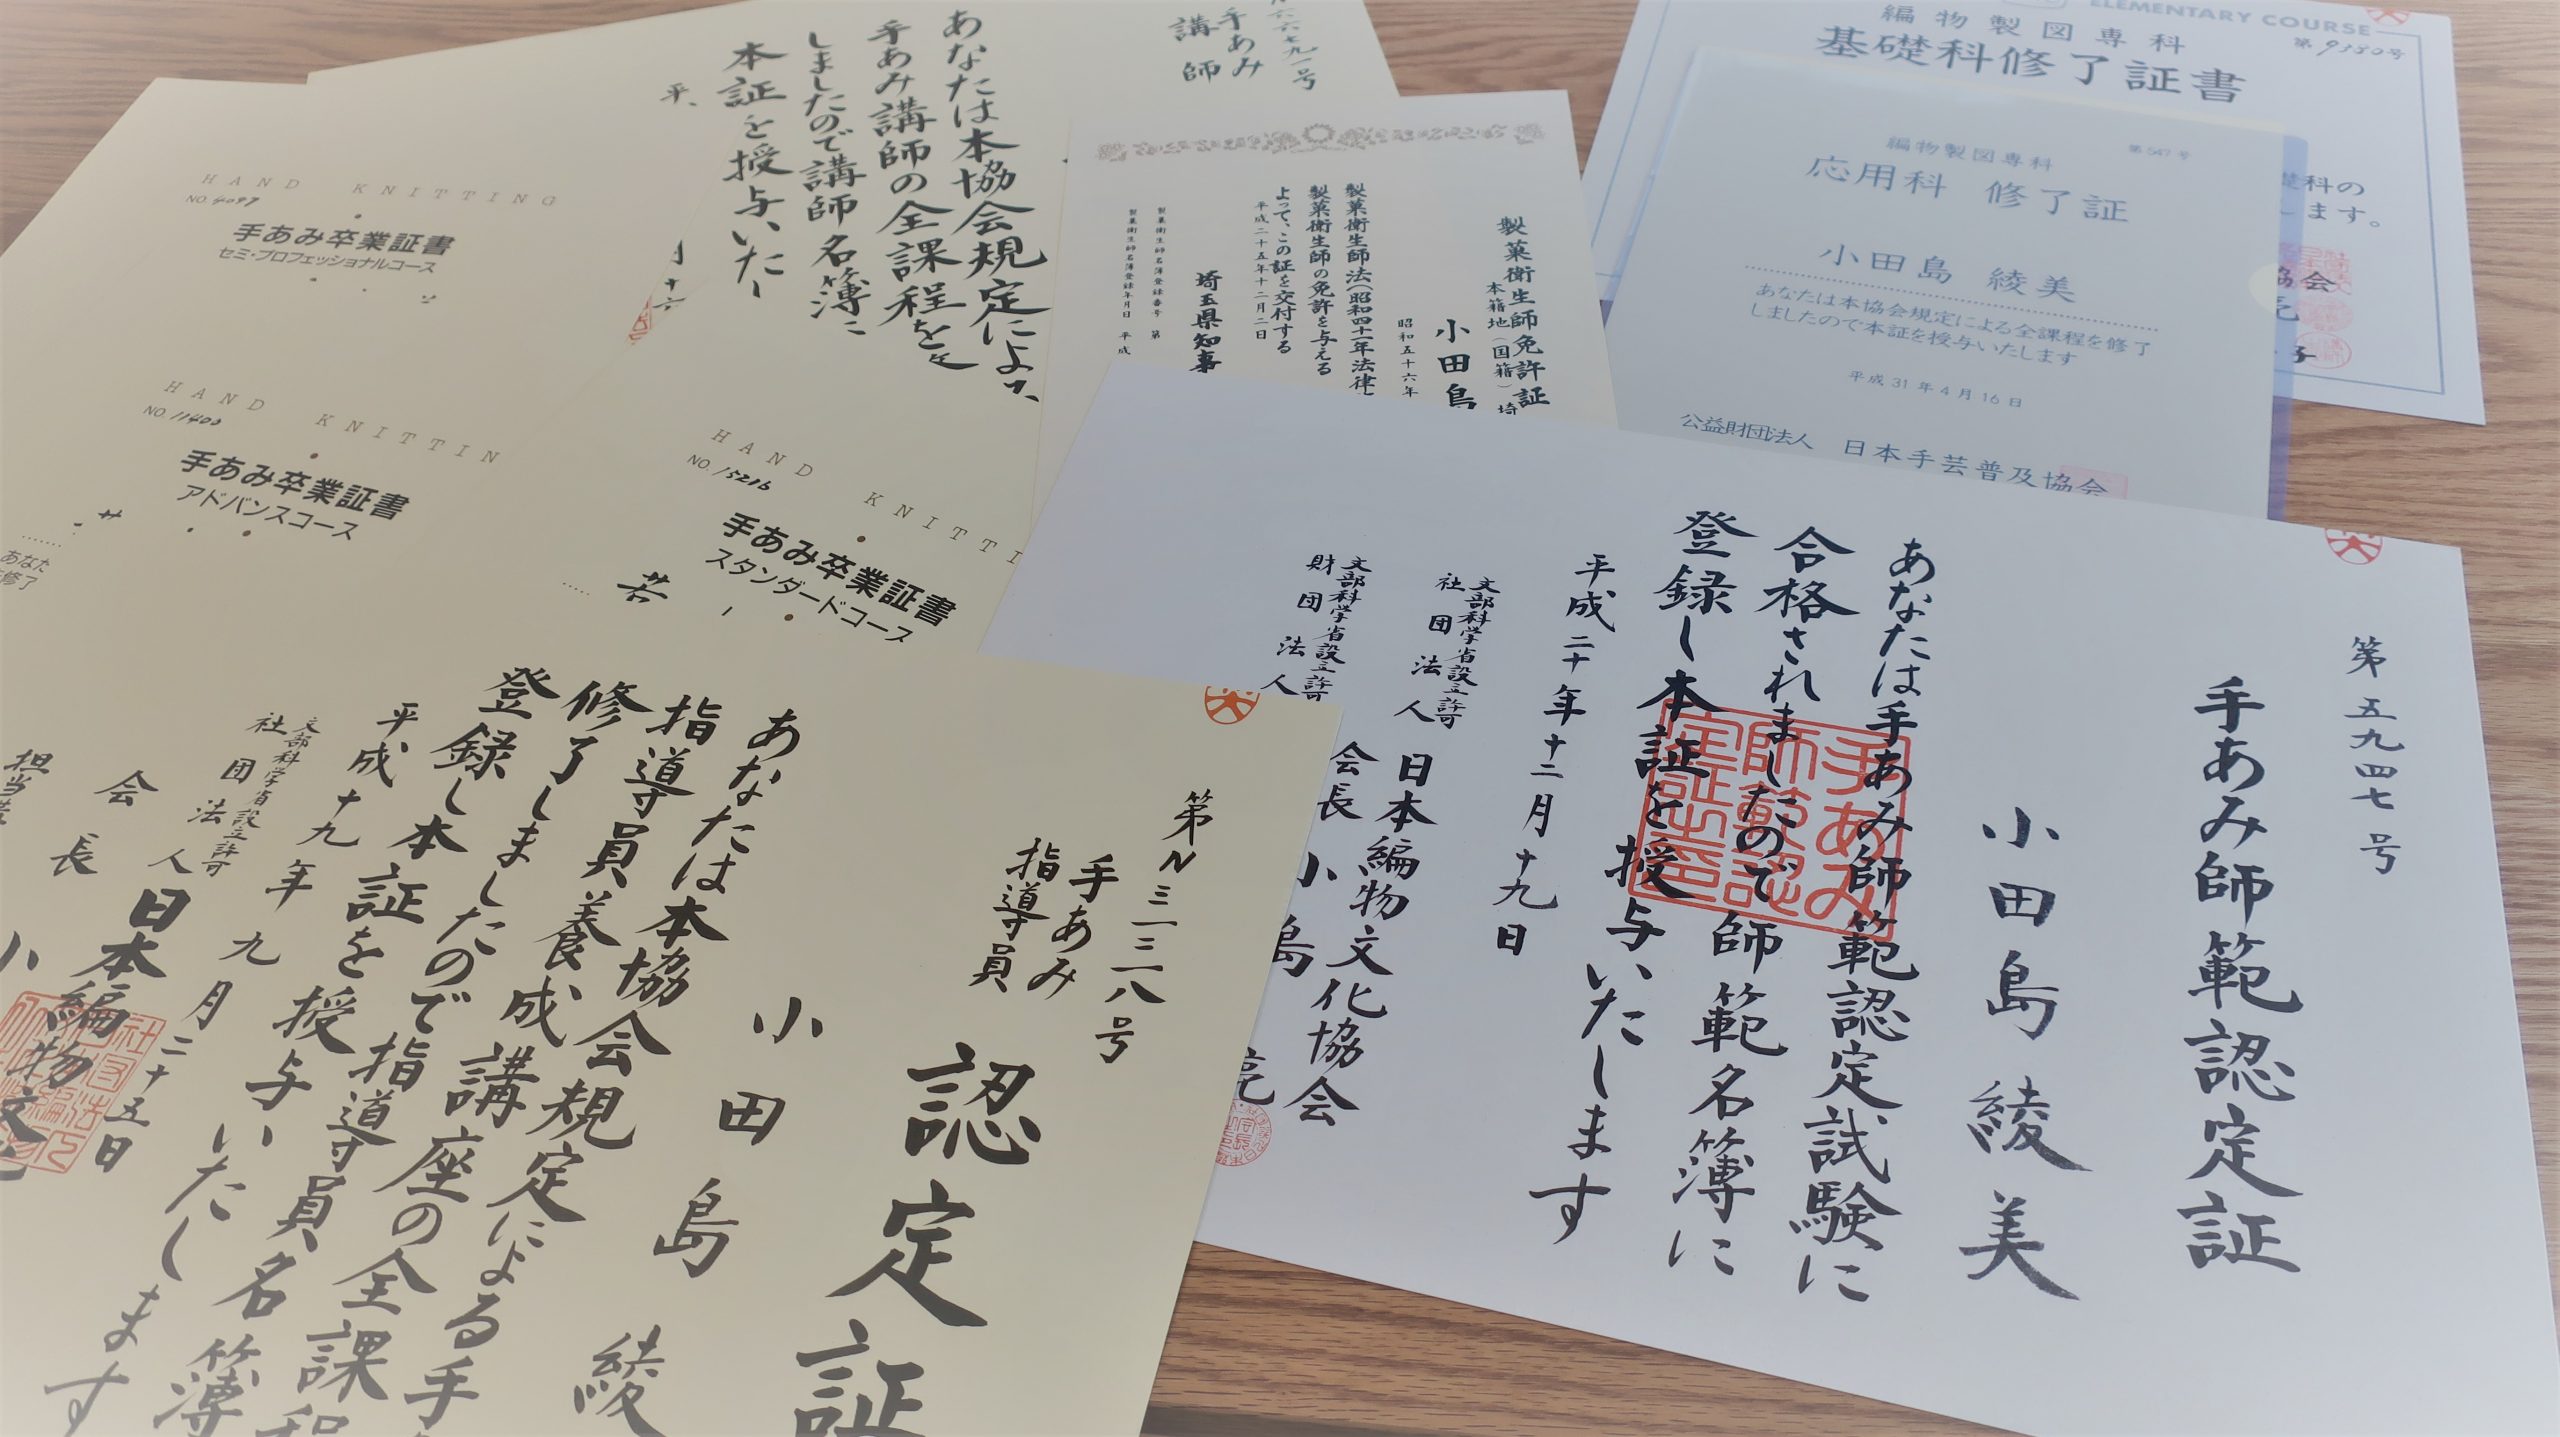 HAND KNITTING
NO. 4097
手あみ卒業証書
セミ・プロフェッショナルコース
HAND KNITTIN
NO. 11400
手あみ卒業証書
アドバンスコース
あなた
修了
HAND KNITTI
NO. 15216
手あみ卒業証書
スタンダードコース
若
六六七九一号
手あみ
講師
あなたは本協会規定によ
手あみ講師の全課程を
しましたので講師名簿に
本証を授与いた
製菓衛生師免許証
本籍地(国籍)埼
小田島
昭和五十六年
製菓衛生師法(昭和四十一年法律
製菓衛生師の免許を与える
よって、この証を交付する
平成二十五年十二月二日
埼玉県知事
製菓衛生師名簿登録番号 第
製菓衛生師名簿登録年月日 平成
ELEMENTARY COURSE
編物製図専科
第9380号
基礎科修了証書
礎科の
します。
協会
編物製図専科
第547号
応用科 修了証
小田島 綾美
あなたは本協会規定による全課程を修了
しましたので本証を授与いたします
平成31年4月16日
公益財団法人 日本手芸普及協会
第五九四七号
手あみ師範認定証
小田島綾美
あなたは手あみ師範認定試験に
合格されましたので師範名簿に
登録し本証を授与いたします
平成二十年十二月十九日
文部科学省設立許可
社団法人 日本編物文化協会
会長 小島
文部科学省設立許可
財団法人
手あみ師範認定証之印
第N三一三一八号
手あみ
指導員
認定証
小田島綾
あなたは本協会規定による手
指導員養成講座の全課程
修了しましたので指導員名簿
登録し本証を授与いたします
平成十九年九月二十五日
文部科学省設立許可
社団法人 日本編物文化
会長 小
担当